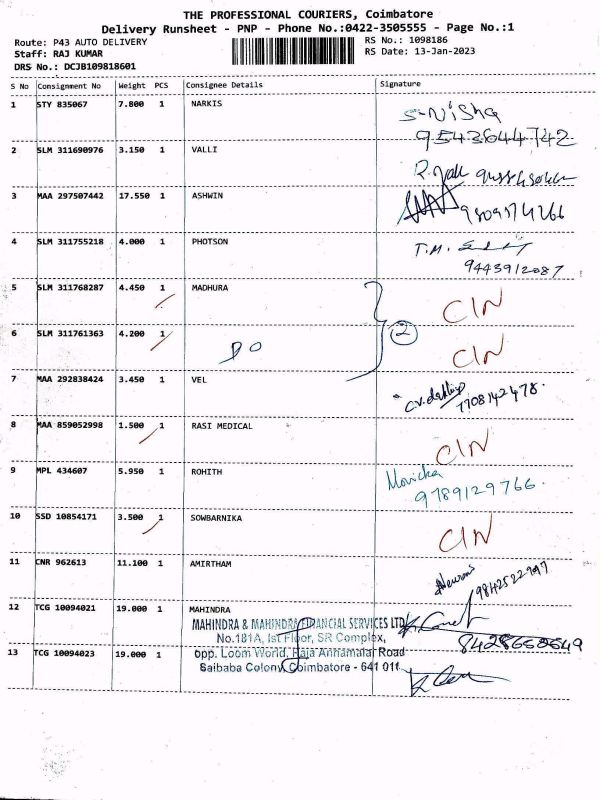 THE PROFESSIONAL COURIERS, Coimbatore
Delivery Runsheet - PNP - Phone No.:0422-3505555 - Page No.:1
Route: P43 AUTO DELIVERY
RS No.: 1098186
Staff: RAJ KUMAR
RS Date: 13-Jan-2023
DRS No.: DCJB109818601
S No Consignment No Weight PCS Consignee Details Signature
1 STY 835067 7.800 1 NARKIS S-Nisha
9543644742
2 SLM 311690976 3.150 1 VALLI
3 MAA 297507442 17.550 1 ASHWIN
4 SLM 311755218 4.000 1 PHOTSON T.M.
9443912087
5 SLM 311768287 4.450 1 MADHURA CIN
6 SLM 311761363 4.200 1 DO 2 CIN
7 MAA 292838424 3.450 1 VEL
7708142478.
8 MAA 859052998 1.500 1 RASI MEDICAL CIN
9 MPL 434607 5.950 1 ROHITH Monicka
9789129766.
10 SSD 10854171 3.500 1 SOWBARNIKA CIN
11 CNR 962613 11.100 1 AMIRTHAM
12 TCG 10094021 19.000 1 MAHINDRA
MAHINDRA & MAHINDRA FINANCIAL SERVICES LTD
No.181A, Ist Floor, SR Complex,
8428660649
13 TCG 10094023 19.000 1 opp. Loom World, Raja Annamalai Road
Saibaba Colony, Coimbatore - 641 011.